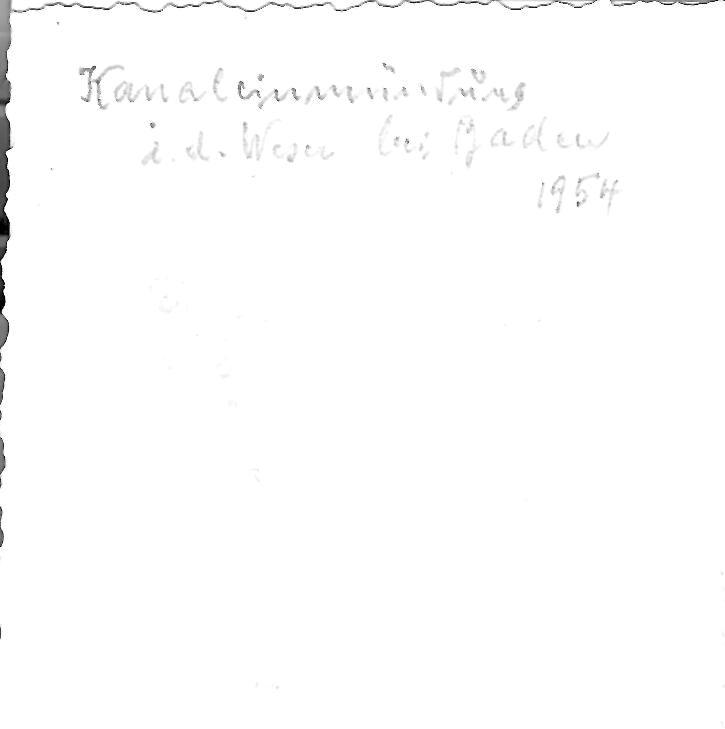 Kanaleinmündung
i. d. Weser bei Baden
1954